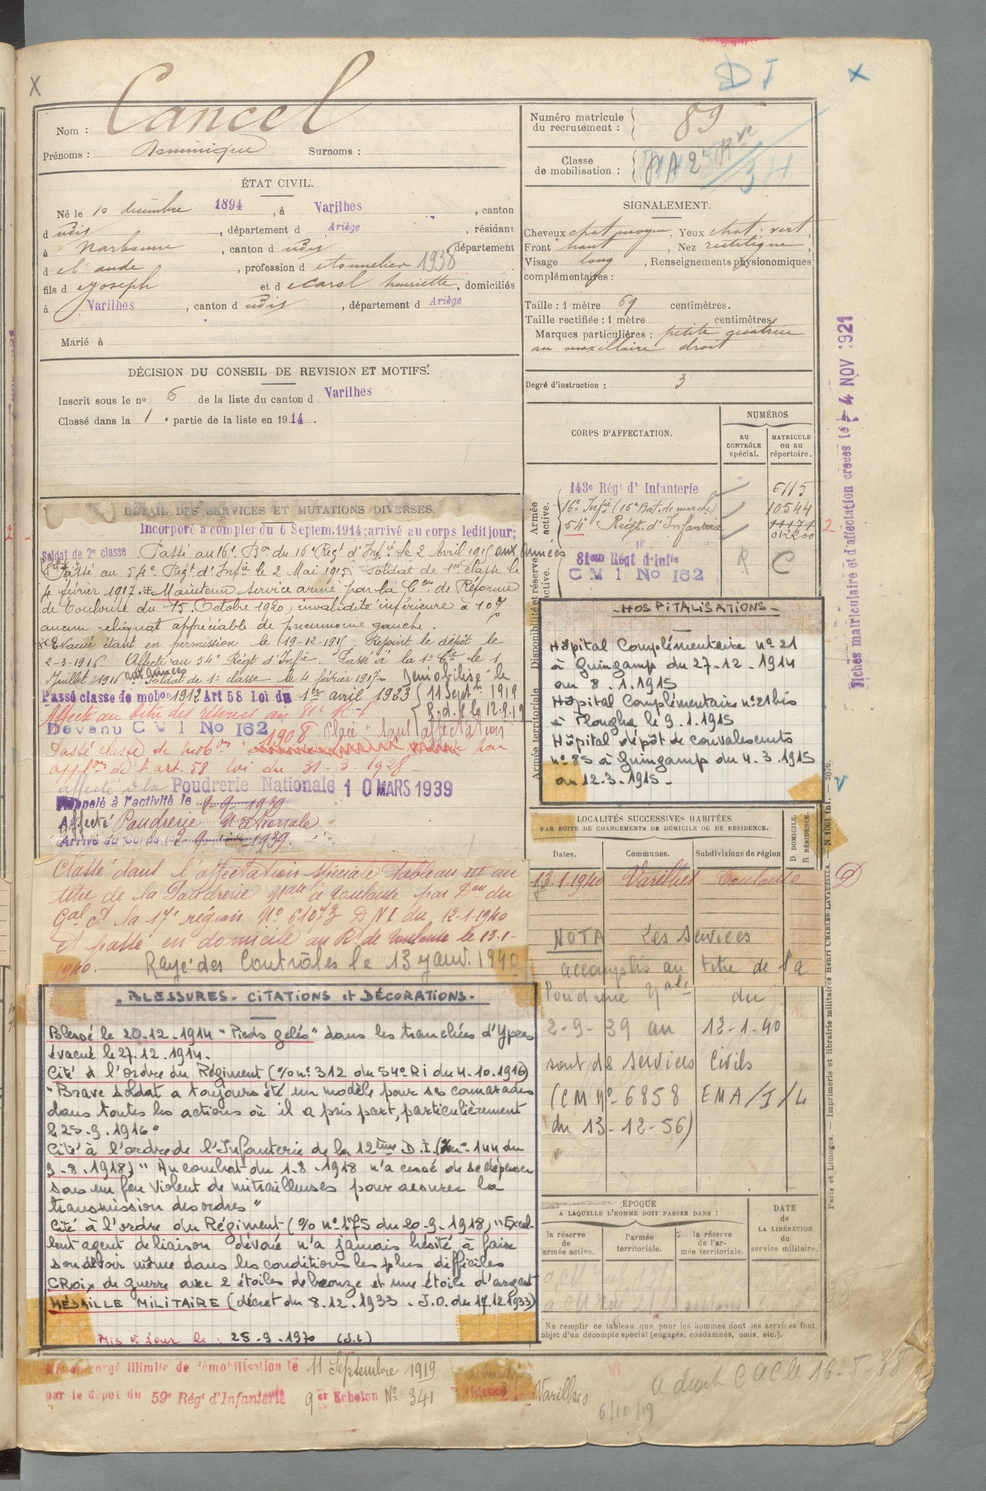 DI
Nom : Cancel
Prénoms : Dominique Surnoms :
Numéro matricule du recrutement : 89
Classe de mobilisation :
ÉTAT CIVIL.
Né le 10 décembre 1894, à Varilhes, canton
d udit, département d Ariège, résidant
à Narbonne, canton d udit département
d el aude, profession d etonnelier 1938
fils d eJoseph et d eCarol henriette, domiciliés
à Varilhes, canton d udit, département d Ariège
Marié à
SIGNALEMENT.
Cheveux chat moyen, Yeux chat. vert,
Front haut, Nez rectiligne,
Visage long, Renseignements physionomiques
complémentaires :
Taille : 1 mètre 69 centimètres.
Taille rectifiée : 1 mètre centimètres.
Marques particulières : petite cicatrice
au maxillaire droit
Degré d'instruction : 3
DÉCISION DU CONSEIL DE REVISION ET MOTIFS.
Inscrit sous le no 6 de la liste du canton d Varilhes
Classé dans la 1e partie de la liste en 1914.
CORPS D'AFFECTATION.
NUMÉROS
au CONTRÔLE spécial.
MATRICULE ou au répertoire.
Armée active.
143e Régt d'Infanterie 6115
16e Infie (16e Bat. de marche) 10544
54e Régt d'Infanterie 11171
012200
Disponibilité et réserve de l'armée active.
81eme Régt d'Infie
C M I No 162
R C
Armée territoriale
DÉTAIL DES SERVICES ET MUTATIONS DIVERSES.
Incorporé à compter du 6 Septem. 1914; arrivé au corps ledit jour;
Soldat de 2e classe. Passé au 16e Bon du 16e Régt d'Infie le 2 Avril 1915 aux Armées
Passé au 54e Régt d'Infie le 2 Mai 1915. Soldat de 1ere classe le
4 février 1917. Maintenu service armé par la Con de Réforme
de Toulouse du 15 Octobre 1920, invalidité inférieure à 10%
aucun reliquat appréciable de pneumonie gauche.
Evacué étant en permission le 19-12-1915 Rejoint le dépôt le
2-3-1916. Affecté au 54e Régt d'Infie. Passé à la 1e Cie le 1
Juillet 1916 aux armées Soldat de 1e classe le 4 février 1917. Démobilisé le
Passé classe de mobon 1912 Art 58 Loi du 1er avril 1923 11 Septre 1919
Affecté au titre des réserves au 81e R.I.
Devenu C M I No 162 1908 Placé "Sans affectation"
Passé classe de mobon par
applon de l'art. 58 loi du 31-3-1928
affecté à la Poudrerie Nationale 10 MARS 1939
Rappelé à l'activité le 2-9-1939
Affecté Poudrerie Nationale
Arrivé au Corps le 2-9-1939.
Classé dans l'affectation spéciale Tableau III au
titre de la Poudrerie Nale de Toulouse par Don du
Gal Ct la 17e région No 6107/3 DNI du 12-1-1940
et passé en domicile au R. de Toulouse le 13-1-
1940. Rayé des Contrôles le 13 janv. 1940
- HOSPITALISATIONS -
Hôpital Complémentaire no 21
à Guingamp du 27.12.1914
au 8.1.1915
Hôpital Complémentaire no 21 bis
à Plougha le 9.1.1915
Hôpital dépôt de convalescents
no 85 à Guingamp du 4.3.1915
au 12.3.1915 -
LOCALITÉS SUCCESSIVES HABITÉES
PAR SUITE DE CHANGEMENTS DE DOMICILE OU DE RÉSIDENCE.
Dates. Communes. Subdivisions de région D. DOMICILE. R. RÉSIDENCE.
13-1-1940 Varilhes Toulouse D
NOTA Les Services
accomplis au titre de la
Poudrerie Nale du
2-9-39 au 12-1-40
sont des services Civils
(CM No 6858 EMA/I/L
du 13-12-56)
. BLESSURES - CITATIONS et DÉCORATIONS -
Blessé le 20.12.1914 "Pieds gelés" dans les tranchées d'Ypres
évacué le 27.12.1914.
Cité à l'ordre du Régiment (% no 312 du 54e Ri du 4.10.1916)
"Brave soldat a toujours été un modèle pour ses camarades
dans toutes les actions où il a pris part, particulièrement
le 25-9-1916"
Cité à l'ordre de l'Infanterie de la 12ème D.I. (% no 144 du
3-8-1918) "Au combat du 1-8-1918 n'a cessé de se dépenser
sous un feu violent de mitrailleuses pour assurer la
transmission des ordres"
Cité à l'ordre du Régiment (% no 175 du 20-9-1918) "Excel-
lent agent de liaison dévoué n'a jamais hésité à faire
son devoir même dans les conditions les plus difficiles
CROIX de guerre avec 2 étoiles de bronze et une étoile d'argent
MÉDAILLE MILITAIRE (décret du 8.12.1933 - J.O. du 17.12.1933)
Mis à jour le : 25-9-1970
ÉPOQUE
À LAQUELLE L'HOMME DOIT PASSER DANS :
la réserve de l'armée active.
l'armée territoriale.
la réserve de l'armée territoriale.
DATE de LA LIBÉRATION du service militaire.
Ne remplir ce tableau que pour les hommes dont les services font
l'objet d'un décompte spécial (engagés, condamnés, omis, etc.).
congé illimité de démobilisation le 11 Septembre 1919
par le dépôt du 59e Régt d'Infanterie 9er Echelon No 341
Varilhes
6/10/19
a droit CAC le 16-5-35
Fiches matriculaire et d'affectation créées le - 4 NOV 1921
Paris et Limoges. — Imprimerie et librairie militaires Henri CHARLES-LAVAUZELLE.